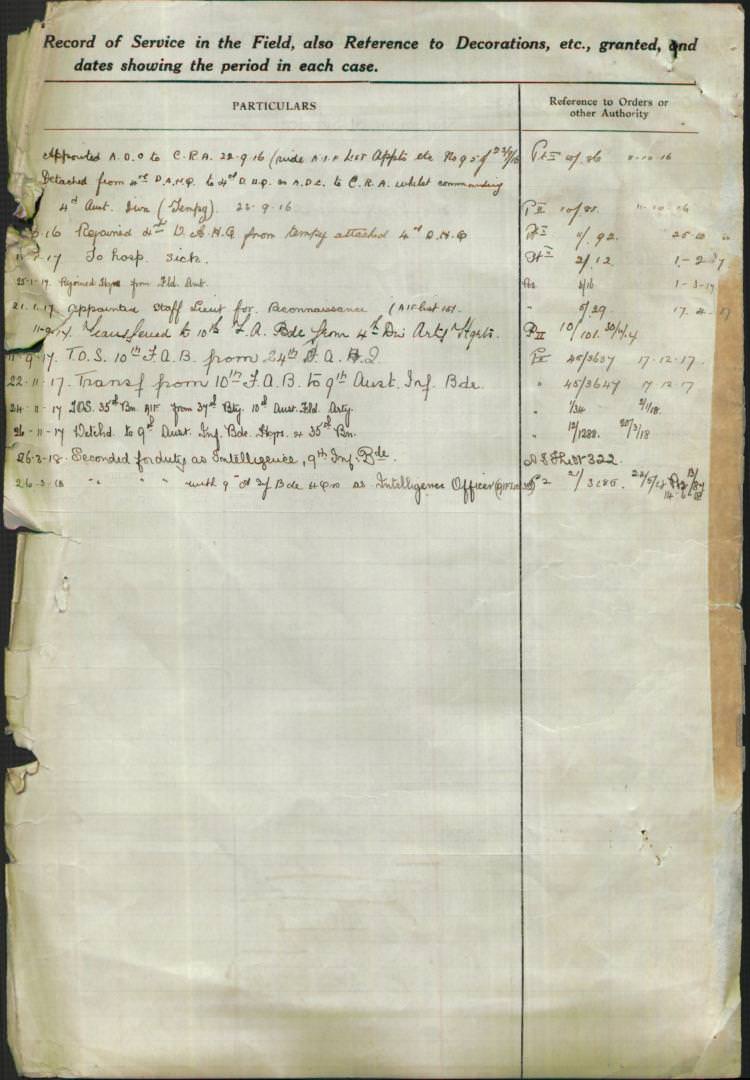 Record of Service in the Field, also Reference to Decorations, etc., granted, and
dates showing the period in each case.
PARTICULARS
Reference to Orders or
other Authority
Appointed A.D.C to C.R.A. 22-9-16 (vide A.I.F List Appts etc No 95 of 23/9/16
Pt II 10/86 11-10-16
Detached from 4th D.A.H.Q. to 4th D.H.Q. as A.D.C. to C.R.A. whilst commanding
4th Aust. Divn (Tempy). 22-9-16
Pt II 10/ 11-10-16
16 Rejoined 4th D.A.H.Q from tempy attached 4th D.H.Q
Pt II 11/92. 25-10
17 To hosp. sick.
Pt II 2/12 1-2-17
25-1-17. Rejoined Hqrs from Fld. Amb.
1-3-17
21-1-17 Appointed Staff Lieut for Reconnaissance (AIF List
5/29 17-4-17
11-9-17. Transferred to 10th F.A. Bde from 4th Div Arty Hqrts.
Pt II 10/101
11-9-17. T.O.S. 10th F.A.B. from 24th
Pt II 45/3637 17-12-17.
22-11-17. Transf from 10th F.A.B. to 9th Aust. Inf. Bde.
" 45/3647 17-12-17
24-11-17 TOS. 35th Bn. AIF from 37th Bty. 10th Aust. Fld. Arty.
" 1/34 2/1/18.
26-11-17 to 9th Aust. Inf. Bde. Hqrs. 35th Bn.
" 12/1288. 20/3/18
26-3-18. Seconded for duty as Intelligence, 9th Inf. Bde.
List 322.
26-3-18 " " " with 9th Inf Bde HQrs as Intelligence Officer
21/3285. 22/5/18